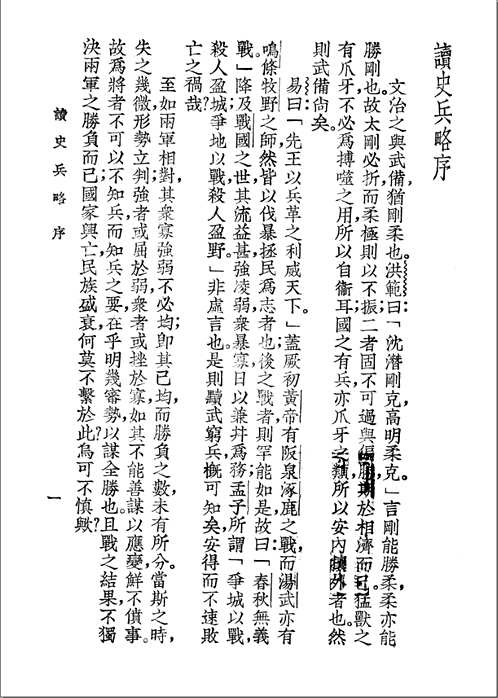 讀史兵略序
文治之與武備，猶剛柔也。洪範曰：「沈潛剛克，高明柔克。」言剛能勝柔，柔亦能
勝剛也。故太剛必折，而柔極則以不振；二者固不可過與偏勝，期於相濟而已。猛獸之
有爪牙，不必爲搏噬之用，所以自衞耳。國之有兵，亦爪牙之類，所以安內攘外者也。然
則武備尙矣。
易曰：「先王以兵革之利威天下。」蓋厥初黃帝有阪泉涿鹿之戰，而湯武亦有
鳴條牧野之師，然皆以伐暴拯民爲志者也。後之戰者，則罕能如是，故曰：「春秋無義
戰。」降及戰國之世，其流益甚，強凌弱，衆暴寡，日以兼幷爲務，孟子所謂「爭城以戰，
殺人盈城；爭地以戰，殺人盈野。」非虛言也。是則黷武窮兵，槪可知矣，安得而不速敗
亡之禍哉？
至如兩軍相對，其衆寡強弱不必均；卽其已均，而勝負之數，未有所分。當斯之時，
失之幾微，形勢立判，強者或屈於弱，衆者或挫於寡，如其不能善謀以應變，鮮不僨事。
故爲將者不可以不知兵，而知兵之要，在乎明幾審勢，以謀全勝也。且戰之結果，不獨
決兩軍之勝負而已；國家興亡，民族盛衰，何莫不繫於此？烏可不愼歟？
讀史兵略序
一